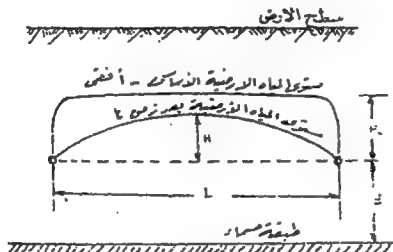 سطح الأرض
مستوى المياه الأرضية الأساسى - أفقى
مستوى المياه الأرضية بعد زمن t
H
L
طبقة صماء